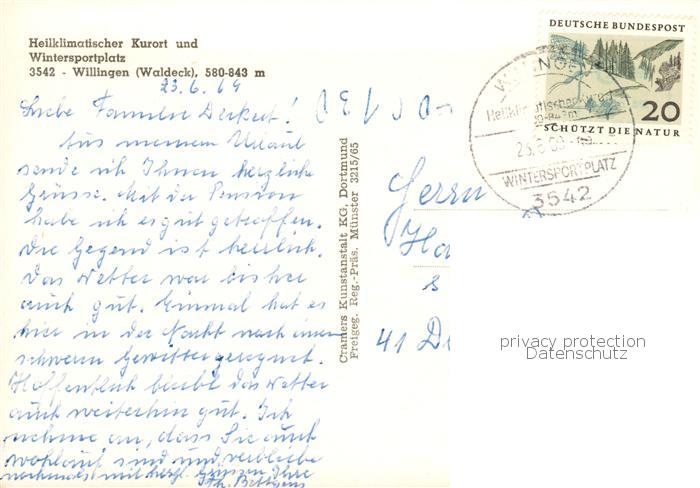 Heilklimatischer Kurort und
Wintersportplatz
3542 - Willingen (Waldeck), 580-843 m
23.6.69
Liebe Familie !
Aus meinem Urlaub
sende ich Ihnen herzliche
Grüsse. Mit der Pension
habe ich es gut getroffen.
Die Gegend ist herrlich.
Das Wetter war bisher
auch gut. Einmal hat es
hier in der Nacht nach einem
schweren Gewitter geregnet.
Hoffentlich bleibt das Wetter
auch weiterhin gut. Ich
nehme an, dass Sie auch
wohlauf sind und verbleibe
nochmals mit herzl. Grüssen Ihre
Cramers Kunstanstalt KG, Dortmund
Freigeg. Reg.-Präs. Münster 3215/65
DEUTSCHE BUNDESPOST
20
SCHÜTZT DIE NATUR
Heilklimatischer
WINTERSPORTPLATZ
3542
Herrn
41
privacy protection
Datenschutz